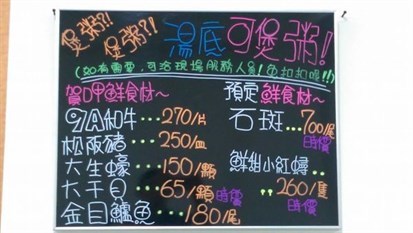 煲粥??
煲粥??
湯底可煲粥!
(如有需要,可洽現場服務人員!免扣扣喔!!)
賀口甲鮮食材~
9A和牛...270/片
松阪豬...250/皿
大生蠔...150/顆
大干貝...65/顆 時價
金目鱸魚...180/尾
預定鮮食材~
石斑...700/尾
時價
鮮甜小紅蟳
..260/隻
時價